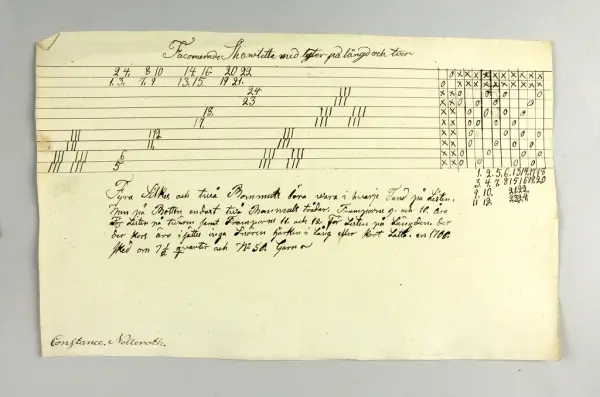 Faconerader Shawlette med lyster på längd och tvär
2 4. 8 10 14. 16. 20 22.
1. 3. 7. 9 13. 15. 19 21.
24
23
18.
17.
12
11.
6
5
1. 2. 5. 6. 13 14. 17 18
3. 4. 7. 8 15 16 19 20
9. 10. 21 22.
11 12. 23 24
Fyra Silkes och två Bommulls böra vara i hvarje Tand på Listen,
Men på Botten endast två Bommulls trådar. Tramporne 9. och 10. äro
för Listen på tvären samt Tramporne 11. och 12. för Listen på Längden. der
der kors äro i sättes inga Snören
sked om 7 1/2 quarter och No 50. Garn
Constance. Nolleroth.